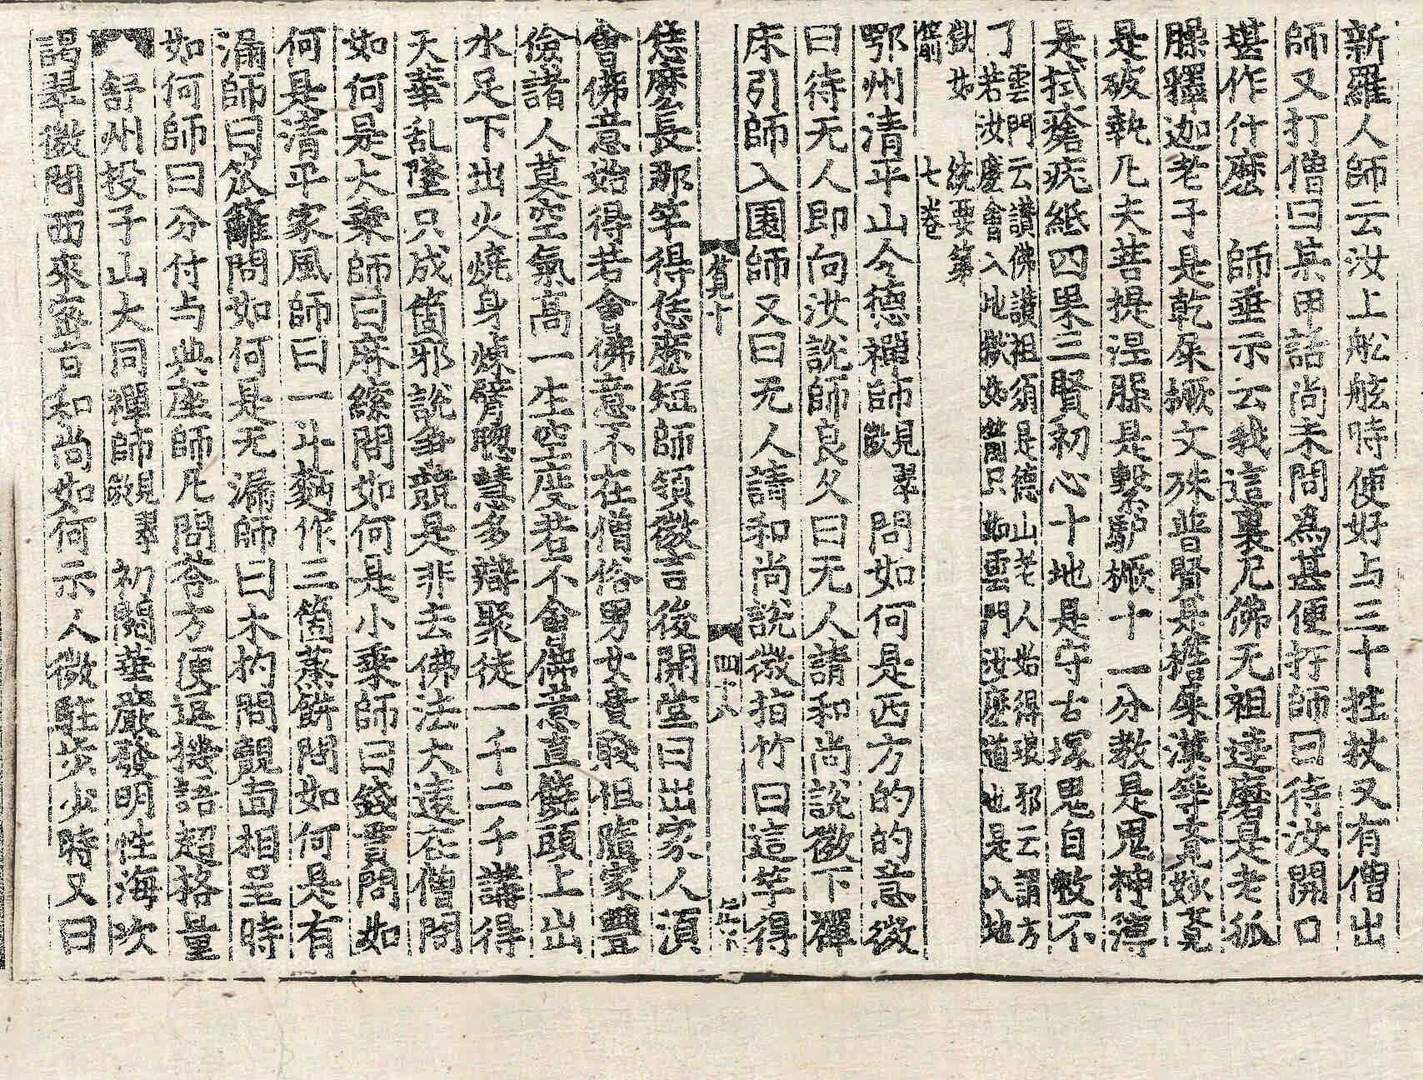 新羅人師云汝上舩舷時便好与三十拄杖又有僧出
師又打僧曰某甲話尚未問為甚便打師曰待汝開口
堪作什麽　師垂示云我這裏无佛无祖達磨是老狐
臊釋迦老子是乾屎撅文殊普賢是擔屎漢等𮗜妙𮗜
是破執凡夫菩提涅槃是繫馿橛十一分教是鬼神簿
是拭瘡疣紙四果三賢初心十地是守古塚鬼自救不
了雲門云讃佛讃祖須是德山老人始得瑯邪云謂方
若汝麽會入地獄如箭只如雲門汝麽道也是入地
獄如　統要第
箭　七巻
鄂州清平山令德禪師見翠微　問如何是西方的的意微
曰待无人即向汝說師良久曰无人請和尚說微下禪
床引師入園師又曰无人請和尚說微指竹曰這竿得
賛十　四十八
恁麽長那竿得恁麽短師領微言後開堂曰出家人湏
會佛意始得若會佛意不在僧俗男女貴賤但隨家豐
儉諸人莫空氣高一生空度若不會佛意直饒頭上出
水足下出火燒身煉臂聦慧多辯聚徒一千二千講得
天華乱墜只成箇邪說爭競是非去佛法大遠在僧問
如何是大乘師曰麻䋲問如何是小乘師曰錢貫問如
何是清平家風師曰一斗麪作三箇蒸餅問如何是有
漏師曰笊籬問如何是无漏師曰木杓問覿面相呈時
如何師曰分付与典座師凡問荅方便退機語超格量
舒州投子山大同禪師見翠微　初閱華嚴發明性海次
謁翠微問西來密旨和尚如何示人微駐步少時又曰